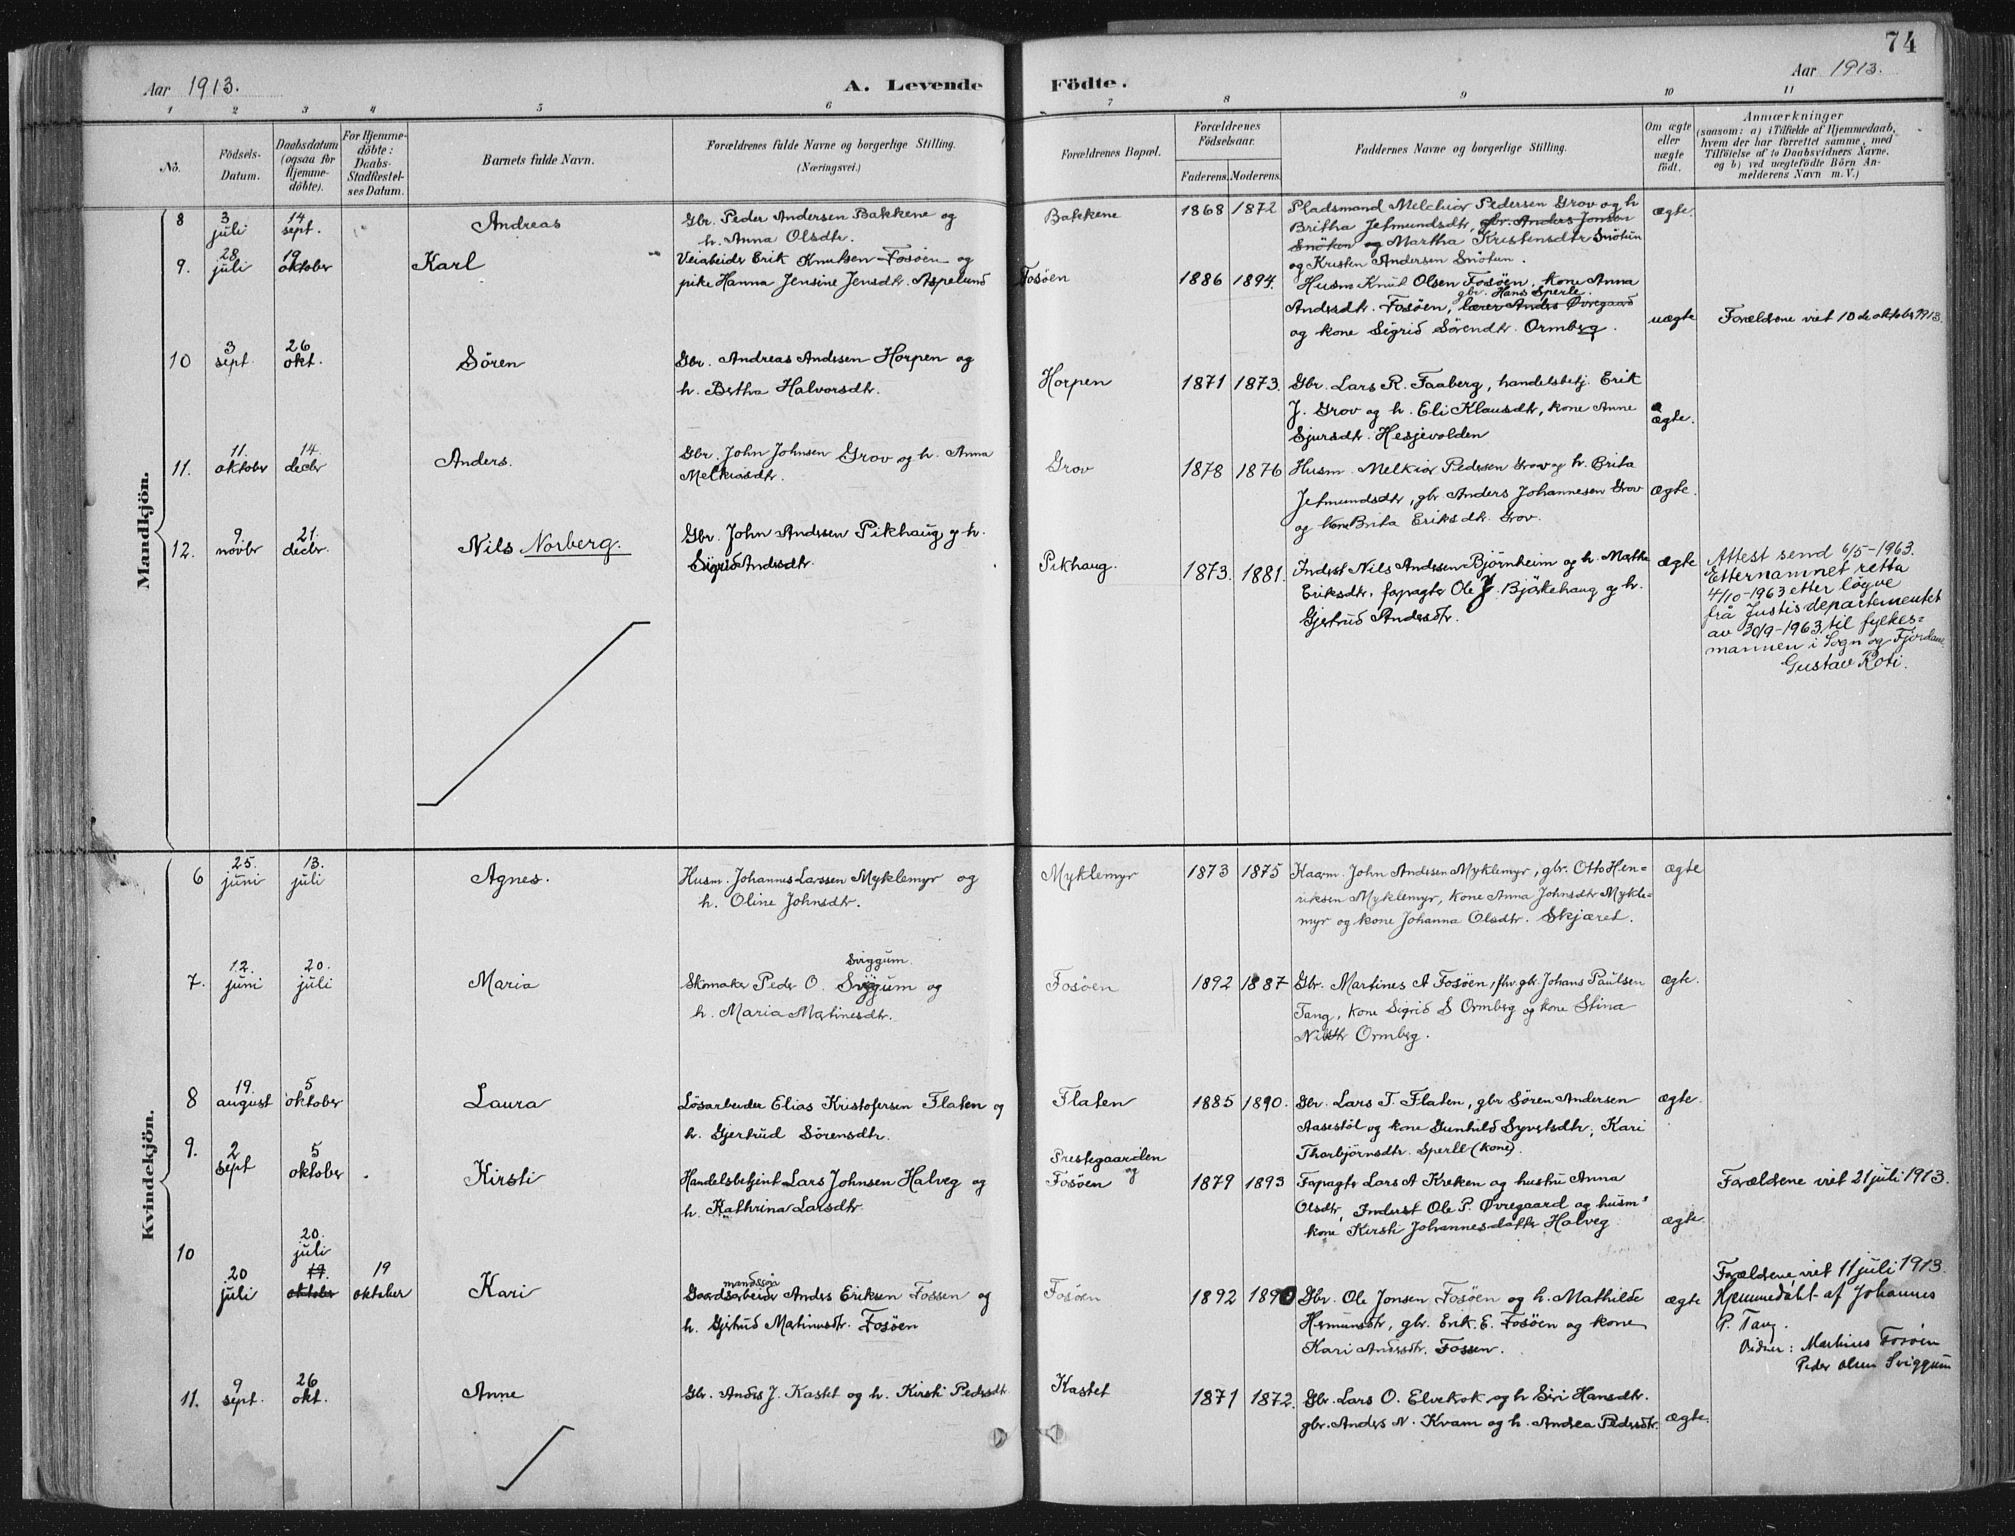 74
Aar 1913.
A. Levende Födte.
Aar 1913.
1 2 3 4 5 6 7 8 9 10 11
No.
Födsels-Datum.
Daabsdatum (ogsaa for Hjemme-döbte).
For Hjemme-döbte: Daabs-Stadfæstel-ses Datum.
Barnets fulde Navn.
Forældrenes fulde Navne og borgerlige Stilling. (Næringsvei.)
Forældrenes Bopæl.
Forældrenes Födselsaar.
Faderens. Moderens.
Faddernes Navne og borgerlige Stilling.
Om ægte eller uægte födt.
Anmærkninger
(saasom: a) i Tilfælde af Hjemmedaab,
hvem der har forrettet samme, med
Tilföielse af to Daabsvidners Navne,
og b) ved uægtefödte Börn An-
melderens Navn m. V.)
Mandkjön.
8 3 juli 14 sept. Andreas
Gbr. Peder Andersen Bakkene og
h. Anna Olsdtr.
Bakkene 1868 1872
Pladsmand Melchior Pedersen Grov og h
Britha Jetmundsdtr, gbr. Anders Jonsen
Snötun og Martha Kristensdtr Snötun
og Kristen Andersen Snötun.
ægte.
9. 28 juli 19 oktober Karl
Veiarbeider Erik Knutsen Fosöen og
pike Hanna Jensine Jensdtr. Aspelund
Fosöen 1886 1894.
Husm Knut Olsen Fosöen, kone Anna
Andersdtr. Fosöen, gbr. Hans Sperle. lærer Anders Øvregaard
og kone Sigrid Sörendtr. Ormberg.
uægte
Forældrene viet 10de oktober 1913.
10 3 sept. 26 okt. Sören
Gbr. Andreas Andersen Horpen og
h. Bertha Halvorsdtr.
Horpen 1871 1873.
Gbr. Lars R. Faaberg, handelsbetj. Erik
J. Grov og h. Eli Klausdtr, kone Anne
Sjursdtr. Hesjevolden
ægte.
11. 11. oktober 14. decbr Anders.
Gbr. John Johnsen Grov og h. Anna
Melkiorsdtr.
Grov 1878 1876
Husm. Melkior Pedersen Grov og h. Brita
Jetmundsdtr, gbr Anders Johannesen Grov
og kone Brita Eriksdtr. Grov.
ægte.
12. 9. novbr 21. decbr. Nils Norberg.
Gbr. John Andersen Pikhaug og h.
Sigrid Andersdtr.
Pikhaug. 1873. 1881.
Inderst Nils Andersen Bjørnheim og h. Martha
Eriksdtr, forpagter Ole J. Björkehaug og h.
Gjertrud Andersdtr.
ægte
Attest send 6/5-1963.
Etternamnet retta
4/10-1963 etter løyve
frå Justisdepartementet
av 30/9-1963 til fylkes=
mannen i Sogn og Fjordane
Gustav Roti.
Kvindekjön.
6 25. juni 13. juli Agnes.
Husm. Johannes Larssen Myklemyr og
h. Oline Johnsdtr.
Myklemyr 1873 1875
Kaarm. John Andersen Myklemyr, gbr. Otto Hen=
riksen Myklemyr, kone Anna Johnsdtr Mykle=
myr og kone Johanna Olsdtr. Skjæret.
ægte
7. 12. juni 20. juli Maria
Sviggum.
Skomaker Peder O. Sviggum og
h. Maria Martinesdtr.
Fosöen 1892 1887
Gbr. Martines A Fosöen, fhv. gbr. Johans Paulsen
Tang, kone Sigrid S Ormberg og kone Stina
Nilsdtr Ormberg.
ægte.
8 19. august 5 oktober Laura
Lösarbeider Elias Kristofersen Flaten og
h. Gjertrud Sörensdtr.
Flaten 1885 1890.
Gbr. Lars T. Flaten, gbr Sören Andersen
Aasestöl og kone Gunhild Syvertsdtr, Kari
Thorbjörnsdtr. Sperle (kone).
ægte.
9. 2 sept 5 oktober Kirsti
Handelsbetjent Lars Johnsen Halveg og
h. Kathrina Larsdtr
Prestegaarden og Fosöen 1879 1893
Forpagter Lars A Kreken og hustru Anna
Olsdtr, Inderst Ole P. Øvregaard og husm=
kone Kirsti Johannesdatter Halveg
ægte.
Forældrene viet 21 juli 1913.
10 20 juli 20. juli 19. oktober 19 oktober Kari
mandssön
Gaardsarbeider Anders Eriksen Fossen og
h. Gjertrud Martinusdtr. Fosöen
Fosöen 1892 1890
Gbr. Ole Jonsen Fosöen og h. Mathilde
Hermundsdtr, gbr. Erik. E. Fosöen og kone
Kari Andersdtr. Fossen.
ægte
Forældrene viet 11 juli 1913.
Hjemmedöbt af Johannes
P. Tang.
Vidner: Martinus Fosöen
Peder Olsen Sviggum
11. 9 sept. 26 okt. Anne
Gbr. Anders J. Kastet og h. Kirsti Pedersdtr
Kastet 1871 1872.
Gbr. Lars O. Elvekrok og h Siri Hansdtr.
gbr. Anders N. Kvam og h. Andrea Pedersdtr.
ægte.